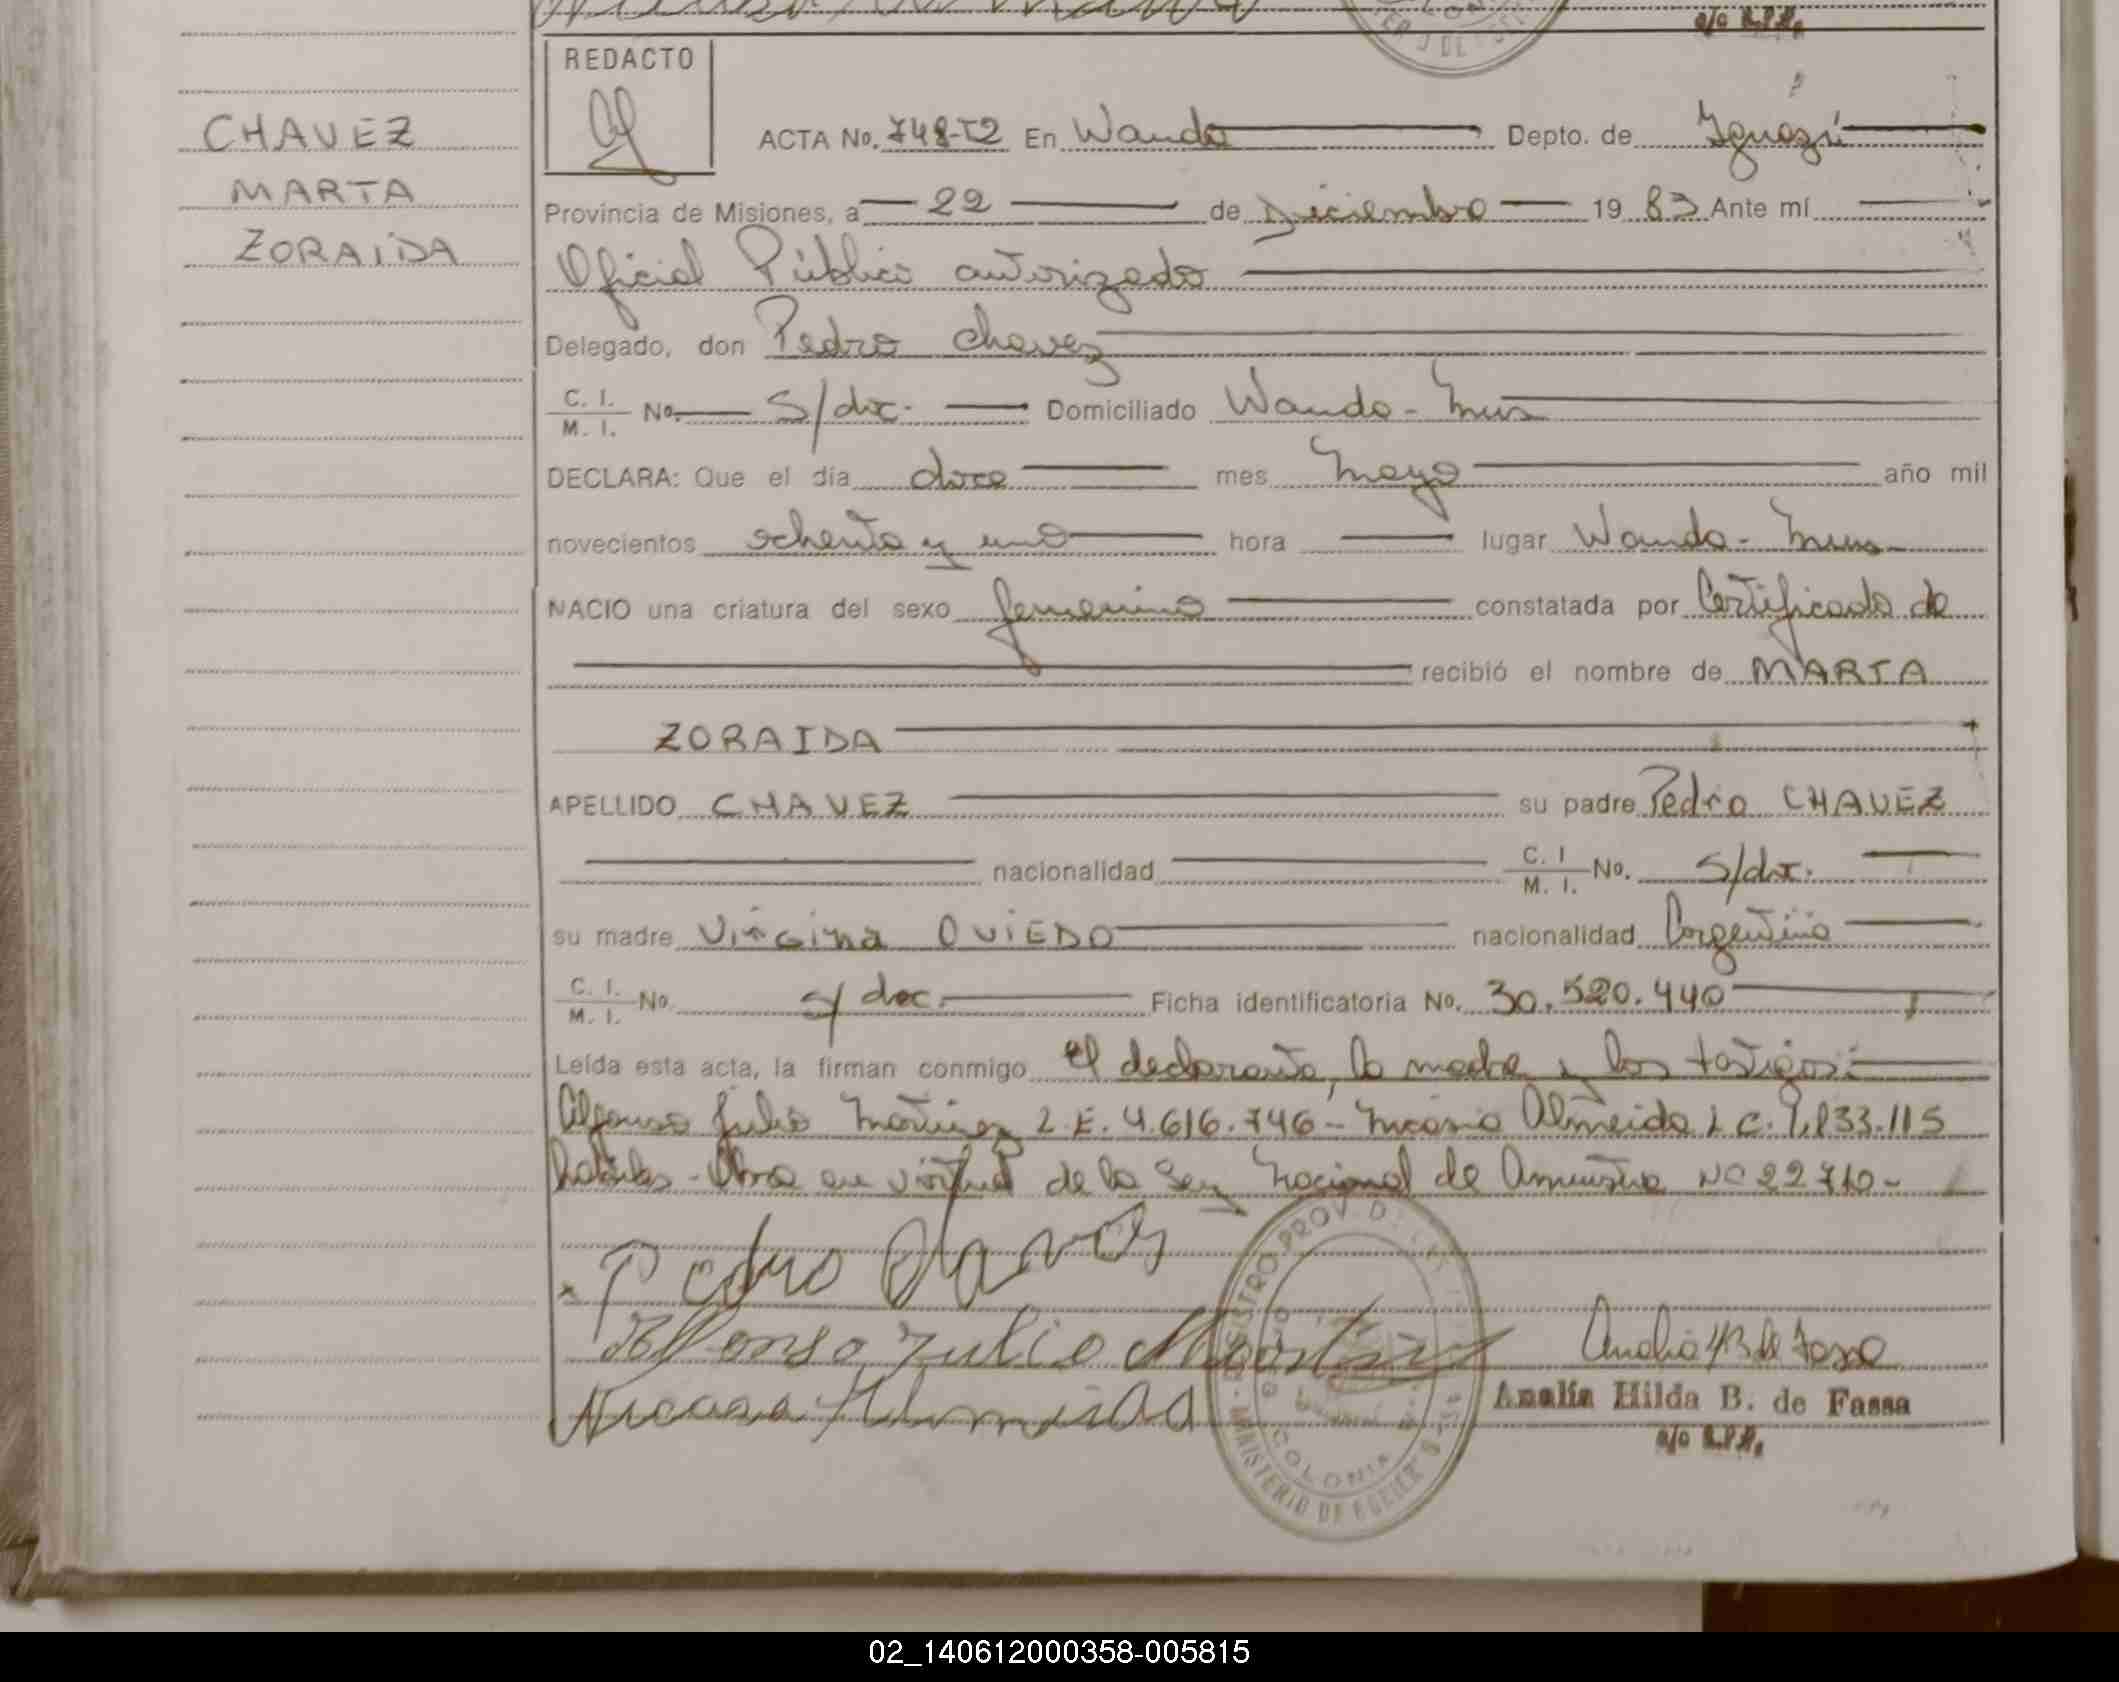 REDACTO
CHAVEZ
MARTA
ZORAIDA
ACTA No. 748-T2 En Wanda Depto. de Iguazú
Provincia de Misiones, a 22 de Diciembre 19 83 Ante mí
Oficial Público autorizado
Delegado, don Pedro Chavez
C. I. M. I. No. S/doc. Domiciliado Wanda - Mnes
DECLARA: Que el día doce mes Mayo año mil
novecientos ochenta y uno hora lugar Wanda - Mnes
NACIO una criatura del sexo femenino constatada por Certificado de
recibió el nombre de MARTA
ZORAIDA
APELLIDO CHAVEZ su padre Pedro CHAVEZ
nacionalidad C. I M. I. No. S/doc.
su madre Virgina OVIEDO nacionalidad Argentina
C. I. M. I. No. s/ doc. Ficha identificatoria No. 30.520.440
Leída esta acta, la firman conmigo el declarante, la madre y los testigos:
Alfonso Julio Martinez L.E. 4.616.746 - Almeida L.C.
habiles - Obra en virtud de la Ley Nacional de Amnistia Nº 22710 -
Pedro Chavez
Alfonso Julio Martinez
Almeida
Analía Hilda B. de Fassa
a/c R.P.P.
REGISTRO PROV. DE
COLONIA
MINISTERIO DE
02_140612000358-005815